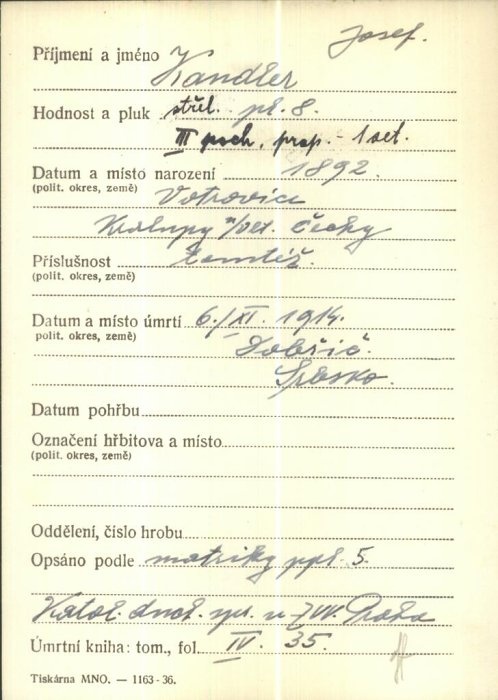 Josef.
Příjmení a jméno Kandler
Hodnost a pluk střel. pl. 8.
III poch. prap. - 1 set.
Datum a místo narození 1892.
(polit. okres, země) Votrovice
Kralupy n/Vlt. Čechy
Příslušnost tamtéž.
(polit. okres, země)
Datum a místo úmrtí 6./XI. 1914.
polit. okres, země)
Dobřič.
Srbsko.
Datum pohřbu
Označení hřbitova a místo
(polit. okres, země)
Oddělení, číslo hrobu
Opsáno podle matriky ppl. 5.
Katol. duch. spr. u ZVV. Praha
Úmrtní kniha: tom., fol. IV. 35.
Tiskárna MNO. — 1163-36.